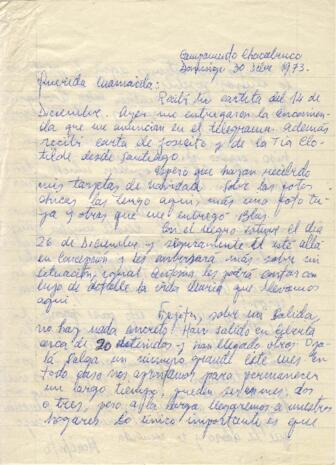 Campamento Chacabuco
Domingo 30 Dcbre 1973.
Querida Mamacita:
Recibí tu cartita del 14 de
Diciembre. Ayer me entregaron la encomien
da que me anuncian en el telegrama. Además
recibí carta de Joseito y de la Tía Clo
tilde desde Santiago.
Espero que hayan recibido
mis tarjetas de navidad sobre las fotos
chicas las tengo aquí, más una foto tu
ya y otras que me entregó Blas.
Con el Negro estuve el día
26 de Diciembre y seguramente él esté allá
en Concepción y les conversará más sobre mi
situación, les podrá contar con
lujo de detalle la vida diaria que llevamos
aquí.
sobre mi salida,
no hay nada concreto! Han salido en libertad
cerca de 20 detenidos y han llegado otros. Oja
lá salga un número grande este mes en
todo caso nos aprontamos para permanecer
un largo tiempo, pueden ser meses, dos
o tres, pero a la larga llegaremos a nuestros
hogares. Lo único importante es que